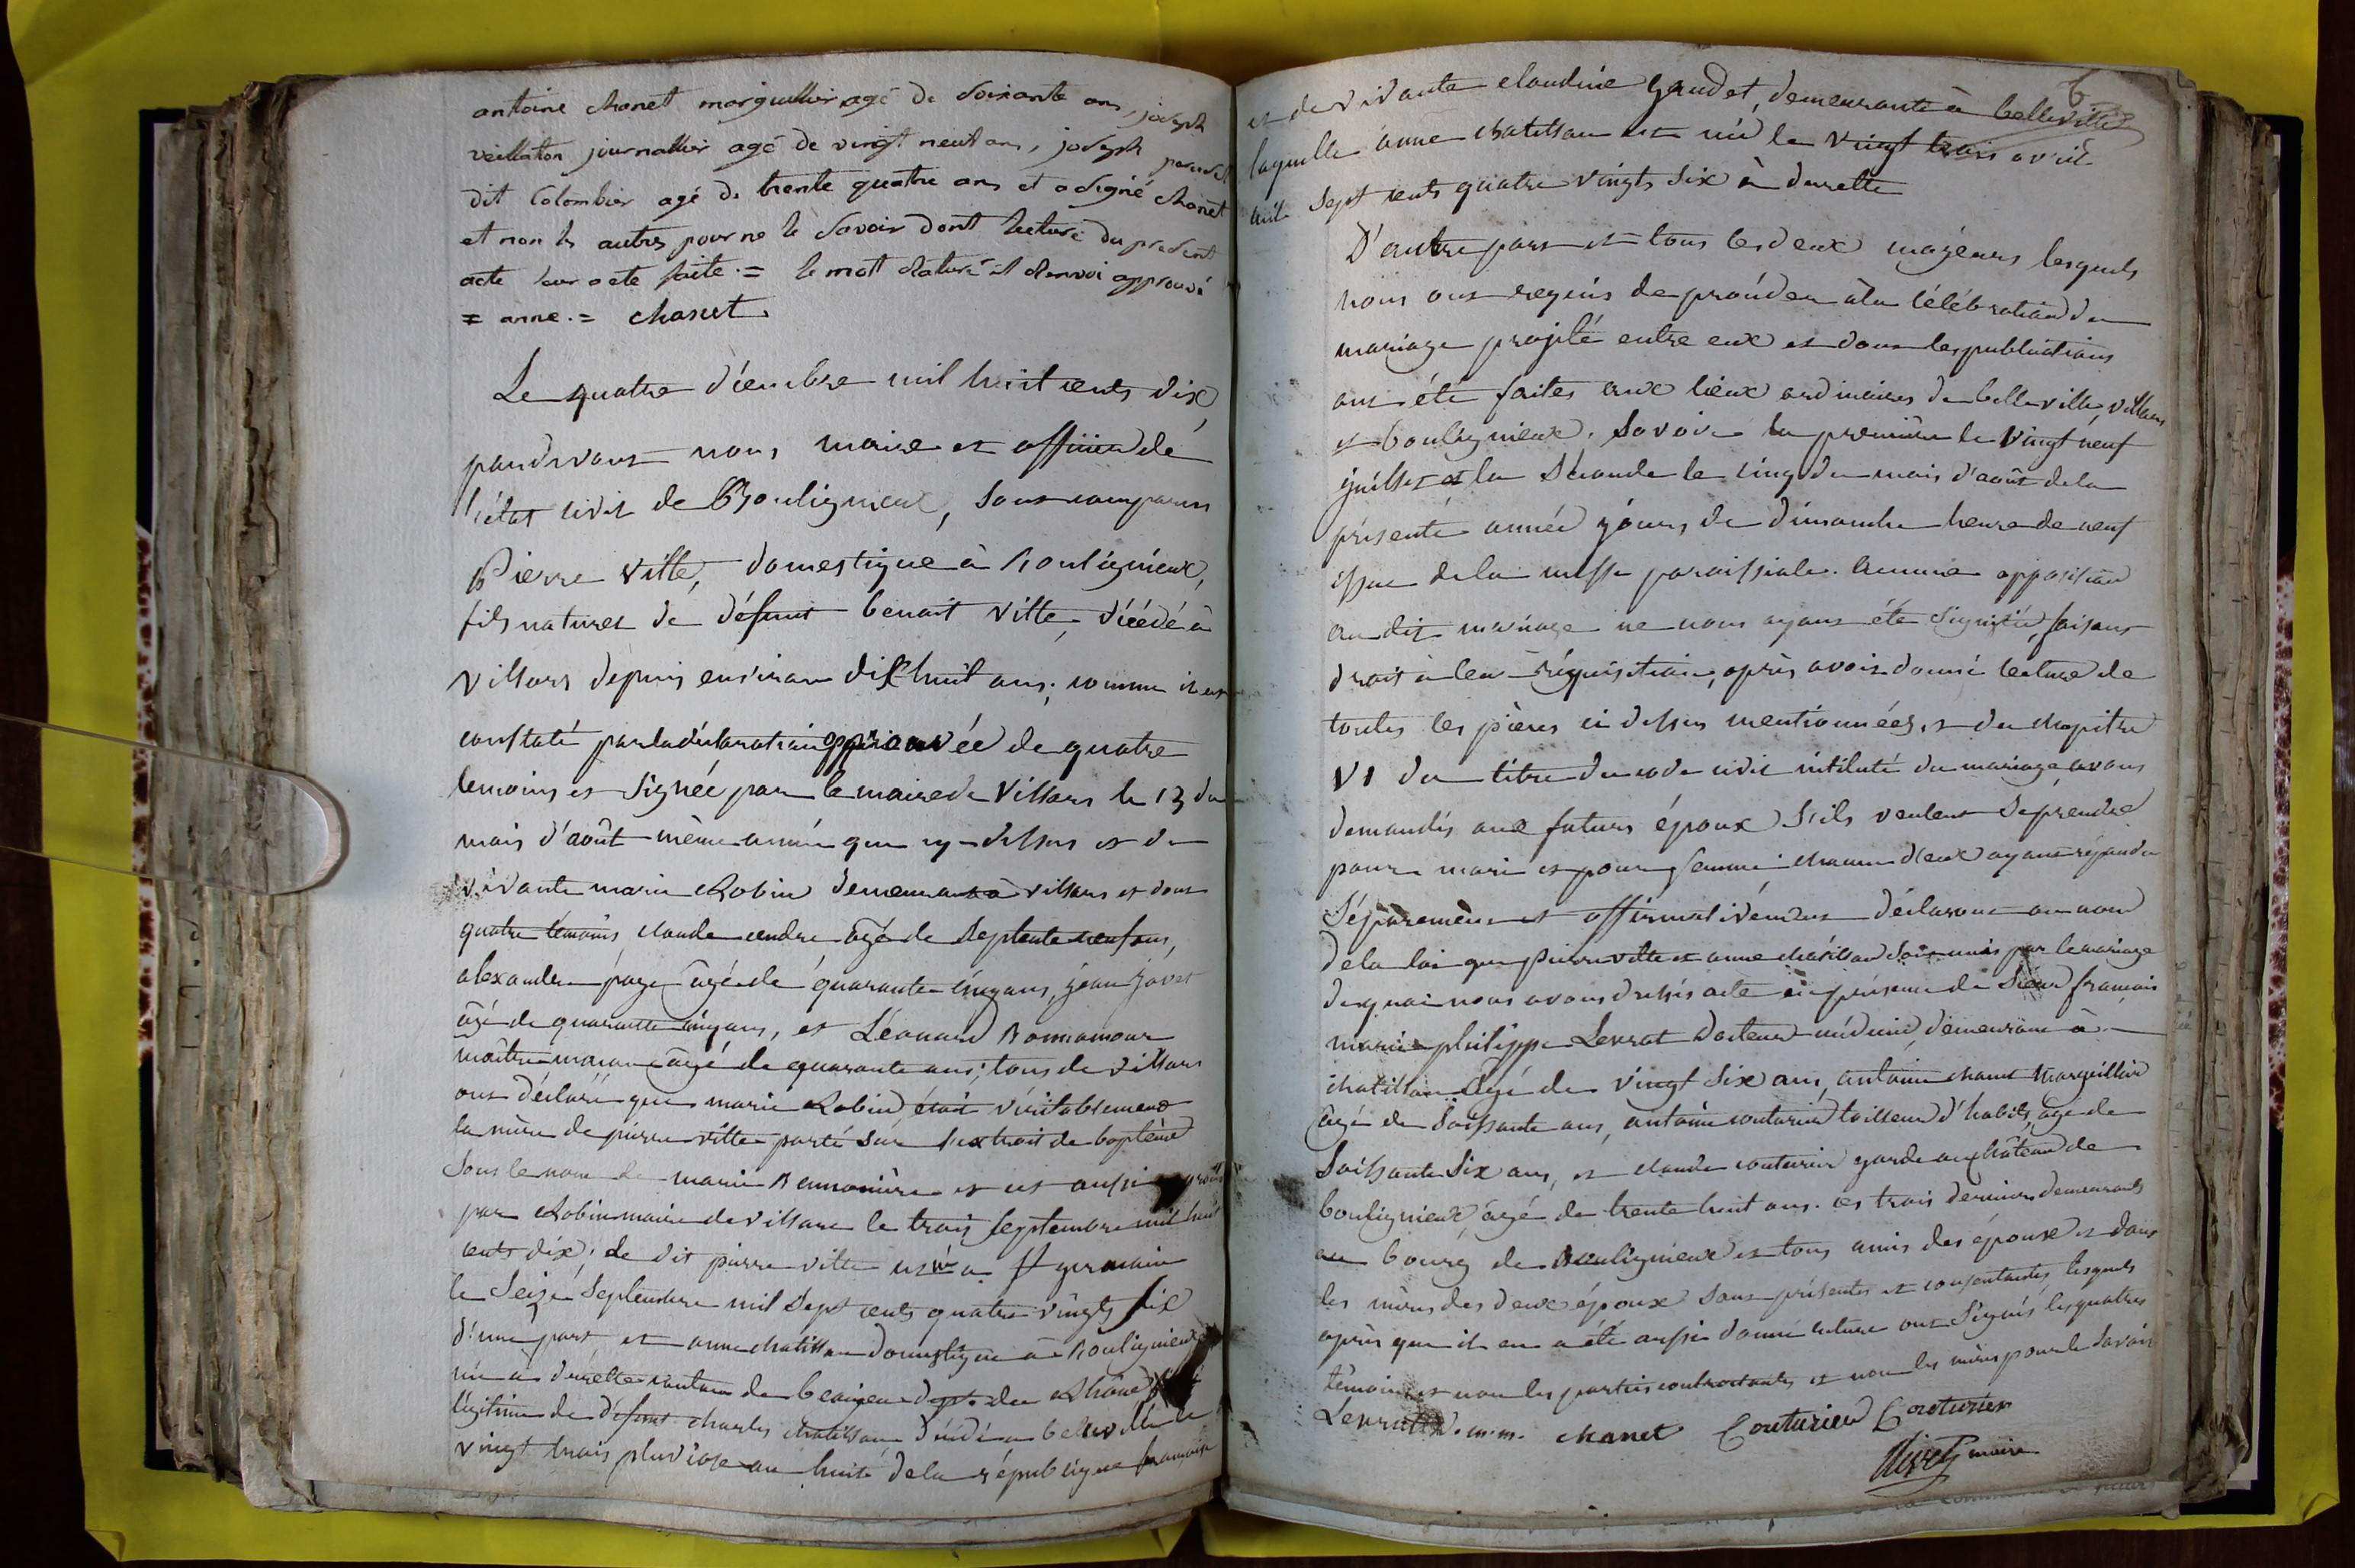 antoine chanet marguillier agé de soixante ans, joseph
veillaton journallier agé de vingt neuf ans, joseph
dit Colombier agé de trente quatre ans et a signé chanet
et non les autres pour ne le savoir dont lecture du present
acte leur a ete faite. = le mott et renvoi approuvé
= anne. = chanet
Le quatre décembre mil huit cents dix
pardevant nous maire et officier de
l'état civil de Bouligneux, sont comparus
Pierre ville, domestique à Bouligneux,
fils naturel de défunt benoit ville, décédé à
villars depuis environ dix huit ans, comme il est
constaté par la déclaration approuvée de quatre
temoins et signée par le maire de villars le 13 du
mois d'août même année que cy-dessus et de
vivante marie Robin demeurant à villars et dont
quatre témoins claude cendre âgé de septente neuf ans,
alexandre page âgé de quarante cinq ans, jean javet
âgé de quarante cinq ans, et Léonard Bonnamour
maître maçon âgé de quarante ans; tous de villars
ont déclaré que marie Robin, était véritablement
la mère de pierre ville porté sur l'extrait de baptème
sous le nom de marie et est aussi
par Robin maire de villars le trois septembre mil huit
cents dix; le dit pierre ville est né a St germain
le seize septembre mil sept cents quatre vingts six
d'une part et anne chatillon domestique à Bouligneux
née à durette canton de beaujeu dept. du Rhône
légitime de défunt charles chatillon décédé a belleville le
vingt trois pluviose an huit de la république française
6
et de vivante claudine gaudet, demeurante à belleville
laquelle anne chatillon est née le vingt trois avril
mil sept cents quatre vingts six à durette
D'autre part et tous les deux majeurs lesquels
nous ont requis de procéder à la célébration du
mariage projeté entre eux et dont les publications
ont été faites aux lieux ordinaires de belleville, villars
et bouligneux. Savoir la première le vingt neuf
juillet et la seconde le cinq du mois d'août de la
présente année jours de dimanche heure de neuf
issue de la messe paroissiale. Aucune opposition
au dit mariage ne nous ayant été signifiée, faisant
droit à leur réquisition, après avoir donné lecture de
toutes les pièces ci dessus mentionnées, et du chapitre
VI du titre du code civil intitulé du mariage, avons
demandés aux futurs époux s'ils veulent se prendre
pour mari et pour femme: chacun d'eux ayant répondu
séparement et affirmativement déclarons au nom
de la loi que pierre ville et anne chatillon sont unis par le mariage
de quoi nous avons dressés acte en présence de Sieur françois
marie philippe Levrat docteur médecin, demeurant à
chatillon âgé de vingt six ans, antoine chanet marguillier
âgé de soissante ans, antoine couturier tailleur d'habits, âgé de
soissante six ans, et claude couturier garde au château de
bouligneux âgé de trente huit ans. ces trois derniers demeurants
au bourg de Bouligneux et tous amis des époux et dont
les mères des deux époux sont présentes et consentantes, lesquels
après que il en a été aussi donné lecture ont signés les quatres
témoins et non les parties contractants et non les mères pour le savoir
Levrat D. m. m. chanet Couturier Couturier
maire